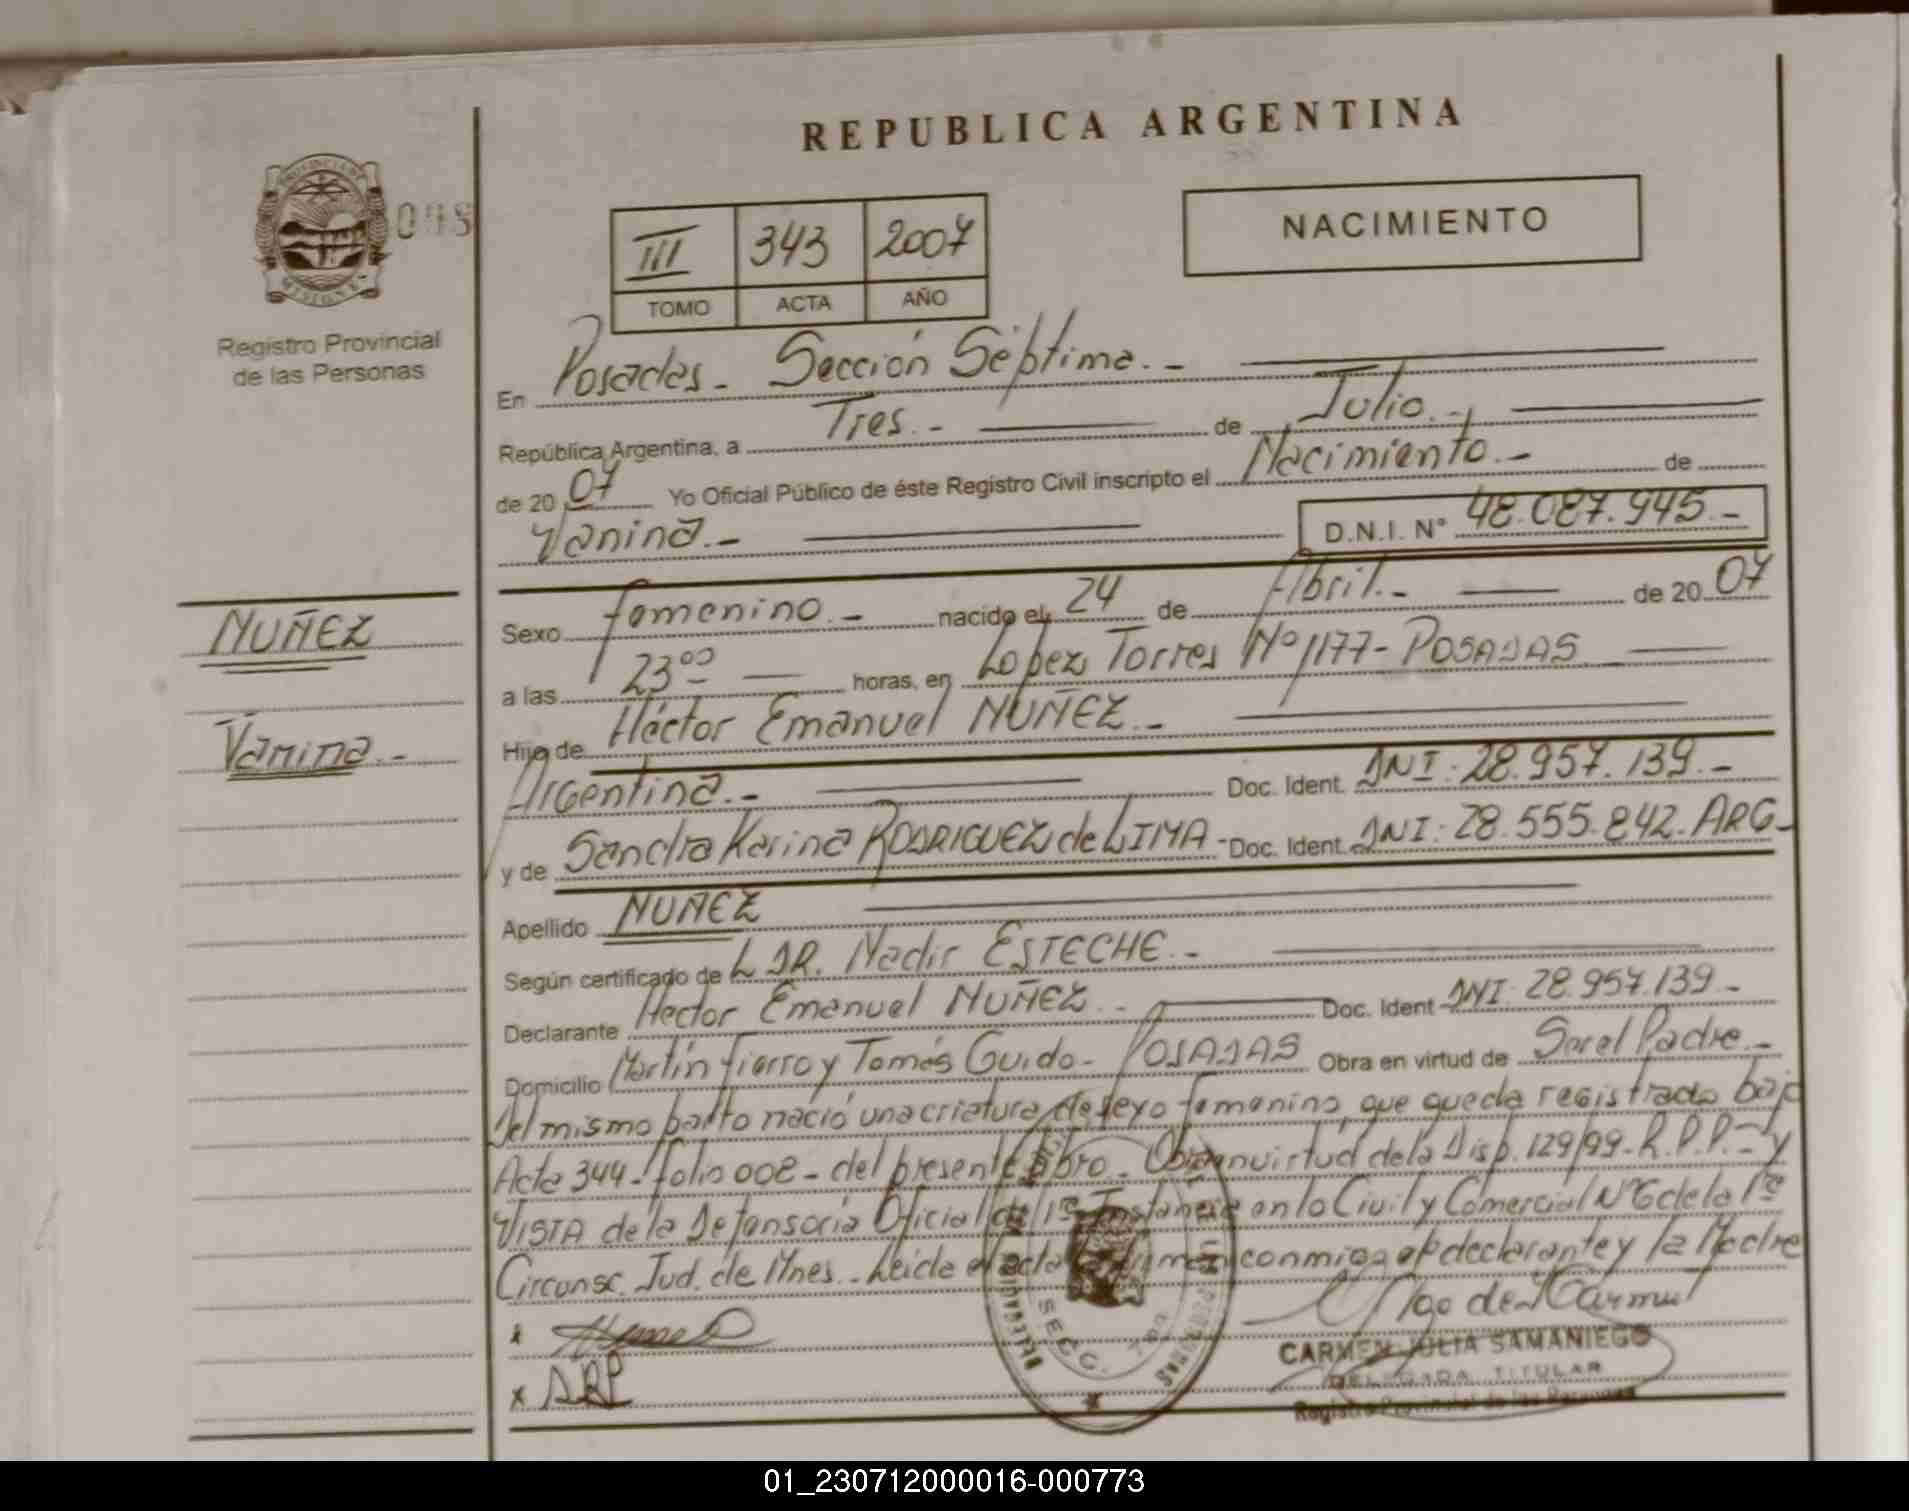 REPUBLICA ARGENTINA
PROVINCIA DE
MISIONES
Registro Provincial
de las Personas
III 343 2007
TOMO ACTA AÑO
NACIMIENTO
En Posadas - Sección Séptima.-
República Argentina, a Tres.- de Julio.-
de 20 07 Yo Oficial Público de éste Registro Civil inscripto el Nacimiento.- de
Vanina.- D.N.I. N° 48.087.945.-
Sexo femenino.- nacido el 24 de Abril.- de 20 07
a las 23°° horas, en Lopez Torres N° 1177- POSADAS
Hijo de Héctor Emanuel NUÑEZ.-
Argentina.- Doc. Ident. DNI: 28.957.139.-
y de Sandra Karina RODRIGUEZ de LIMA - Doc. Ident. DNI: 28.555.842. ARG-
Apellido NUÑEZ
Según certificado de DR. Nadir ESTECHE.-
Declarante Hector Emanuel NUÑEZ.- Doc. Ident DNI: 28.957.139.-
Domicilio Martín Fierro y Tomás Guido - POSADAS Obra en virtud de Ser el Padre.-
Del mismo parto nació una criatura de sexo femenino, que queda registrado bajo
Acta 344- folio 008- del presente libro. Obra en virtud de la Disp. 129/99- R.P.P.- y
VISTA de la Defensoría Oficial de 1ª Instancia en lo Civil y Comercial N° 6 de la 1ª
Circunsc. Jud. de Mnes.- Leida el acta la firman conmigo el declarante y la Madre
NUÑEZ
Vanina.-
SECC. 7ma
CARMEN JULIA SAMANIEGO
DELEGADA TITULAR
Registro Provincial de las Personas
01_230712000016-000773